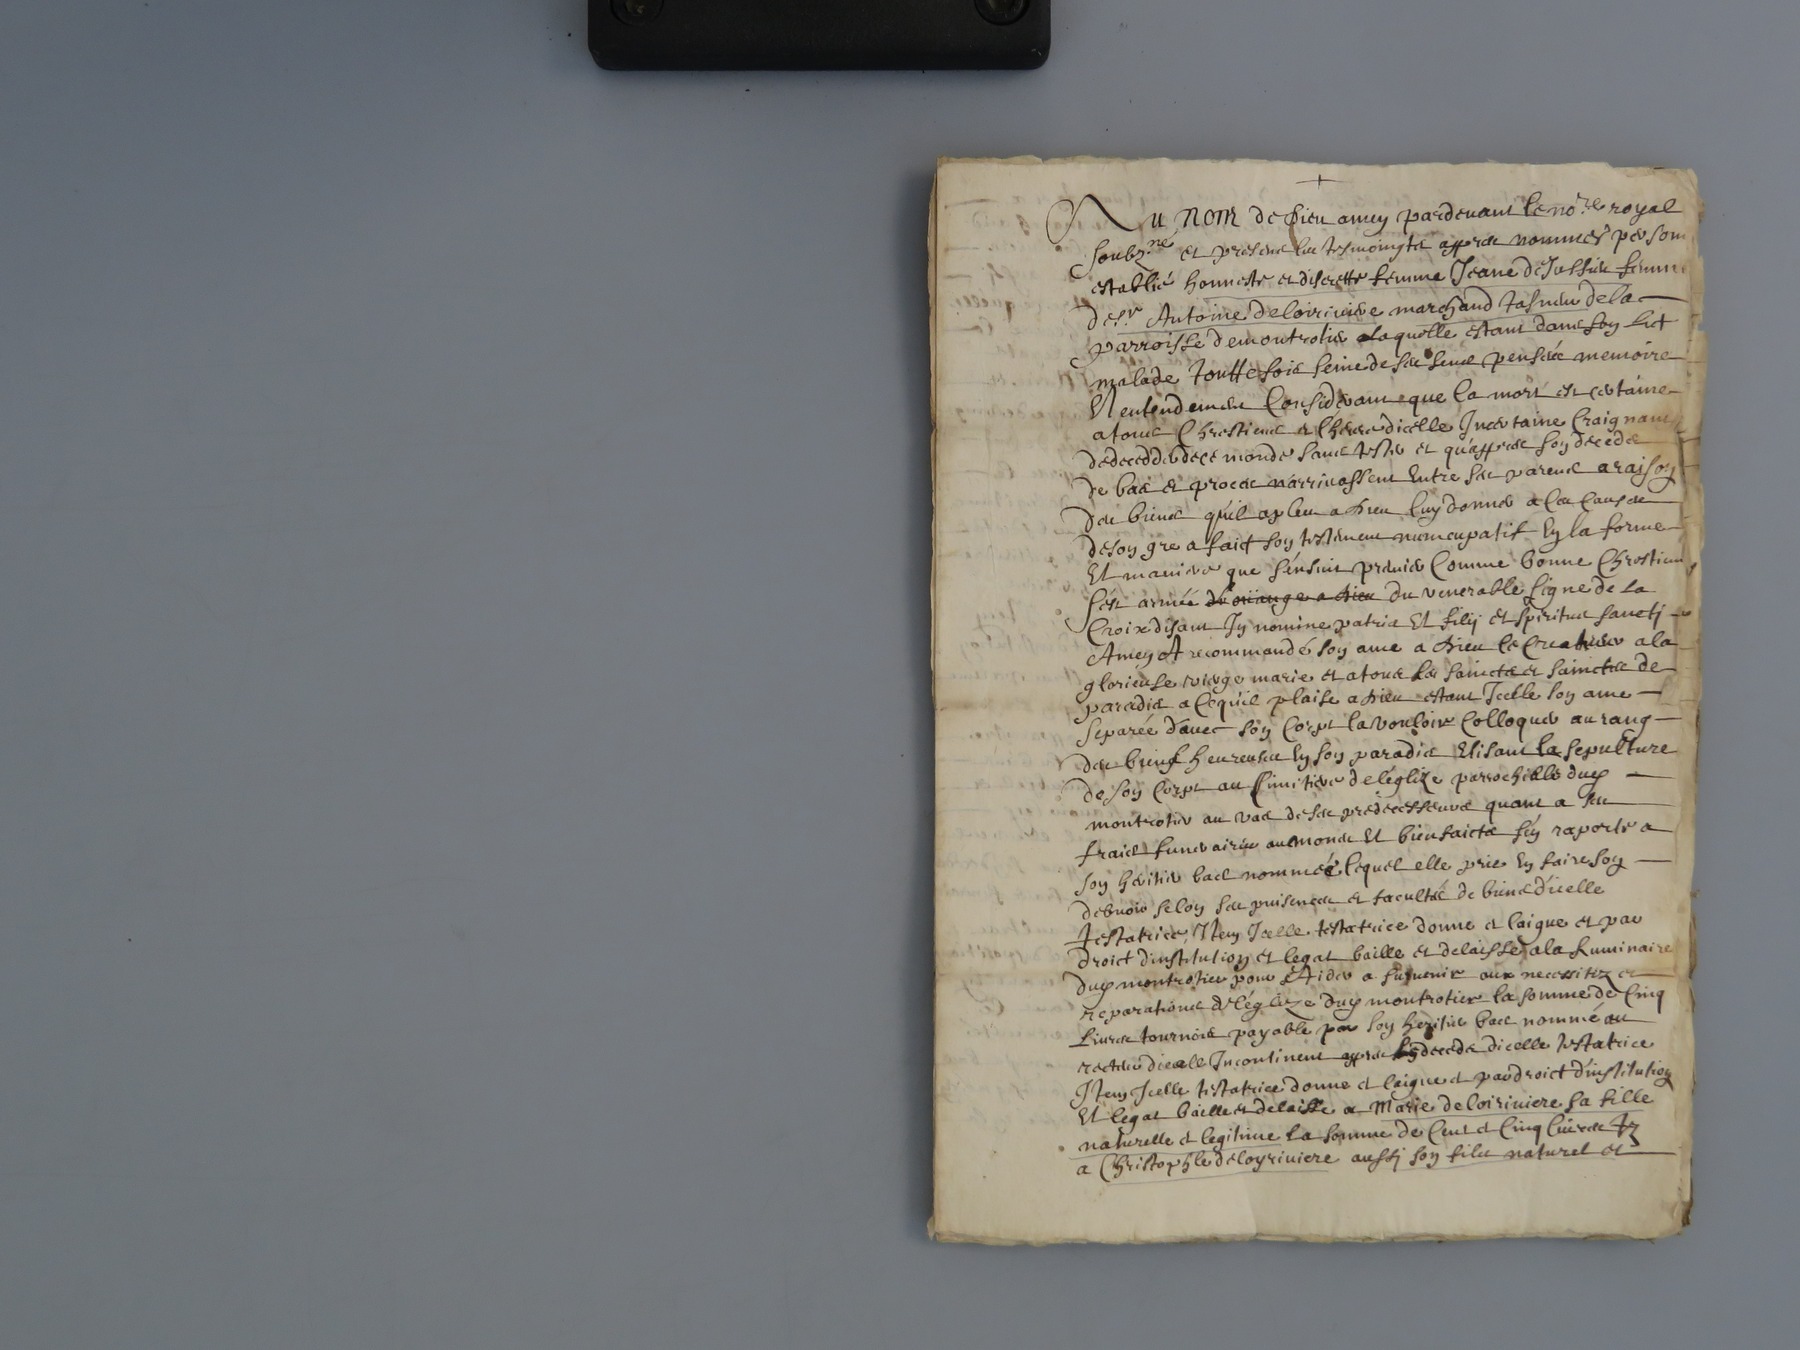 Au nom de Dieu amen pardevant le no.re royal
soubz.né et presens les tesmoingts appres nommes per son
establie honneste et discrette femme Jeane de Jussieu femme
de s.r Antoine deloiriniere marchand de la
parroisse de montrotier laquelle estant dans son lict
malade touttefois seine de ses sens pensée memoire
Et entendement Considerant que la mort est certaine
a tous Chrestiens et l'heure dicelle Incertaine Craignant
de decedder de ce monde sans tester et qu'appres son deceds
debas et proces n'arrivassent Entre ses parens a raison
des biens qu'il a pleu a Dieu luy donner a ces Causes
de son gre a faict son testament nuncupatif En la forme
Et maniere que s'ensuit premier Comme bonne Chrestienne
s'est armée du venerable signe de la
Croix disant In nomine patris Et filij et spiritus sancti
Amen A recommandé son ame a Dieu le Createur a la
glorieuse vierge marie et a tous les saincts et sainctes de
paradis a Ce qu'il plaise a Dieu estant Icelle son ame
separée d'avec son Corps la vouloir Colloquer au rang
des bienheureux En son paradis Elisant la sepulture
de son Corps au Cimitiere de l'eglize parrochialle dud
montrotier au vas de ses predecesseurs quant a ses
frais funeraires aumones Et bienfaicts s'en raporte a
son heritier bas nommé lequel elle prie En faire son
debvoir selon ses puisences et facultés de biens d'icelle
Testatrice, Item Icelle testatrice donne et laigue et par
droict d'institution et legat baille et delaisse a la Luminaire
dud montrotier pour Aider a subvenir aux necessitez et
reparations de l'eglize dud montrotier la somme de Cinq
livres tournois payable par son heritier bas nommé au
recteur dicelle Incontinent appres le deceds dicelle testatrice
Item Icelle testatrice donne et laigue et par droict d'institution
Et legat baille et delaisse a Marie deloiriniere sa fille
naturelle et legitime la somme de Cent et Cinq livres tz
a Christophle deloyriniere aussy son fils naturel et